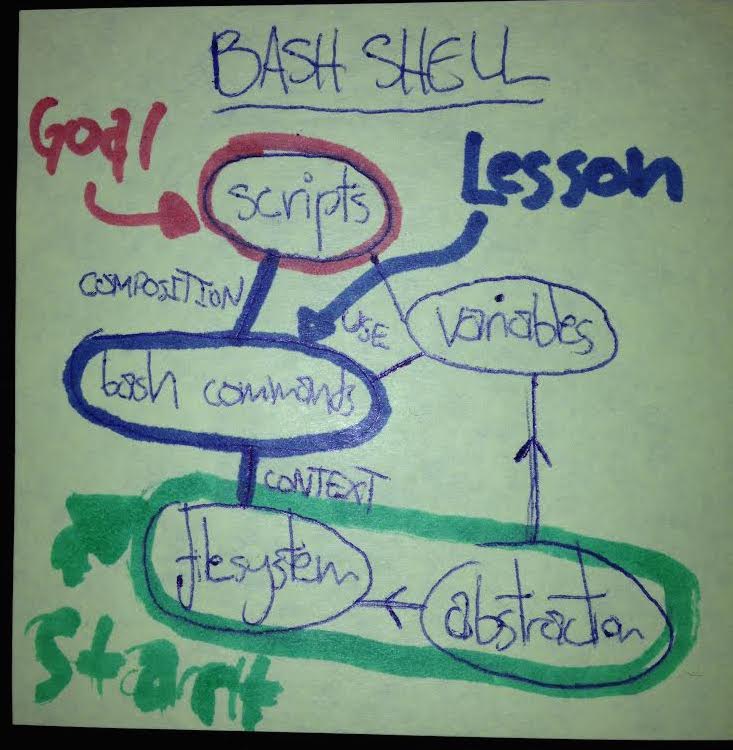 BASH SHELL
Goal
Lesson
scripts
COMPOSITION
USE
variables
bash commands
CONTEXT
filesystem
abstraction
Start